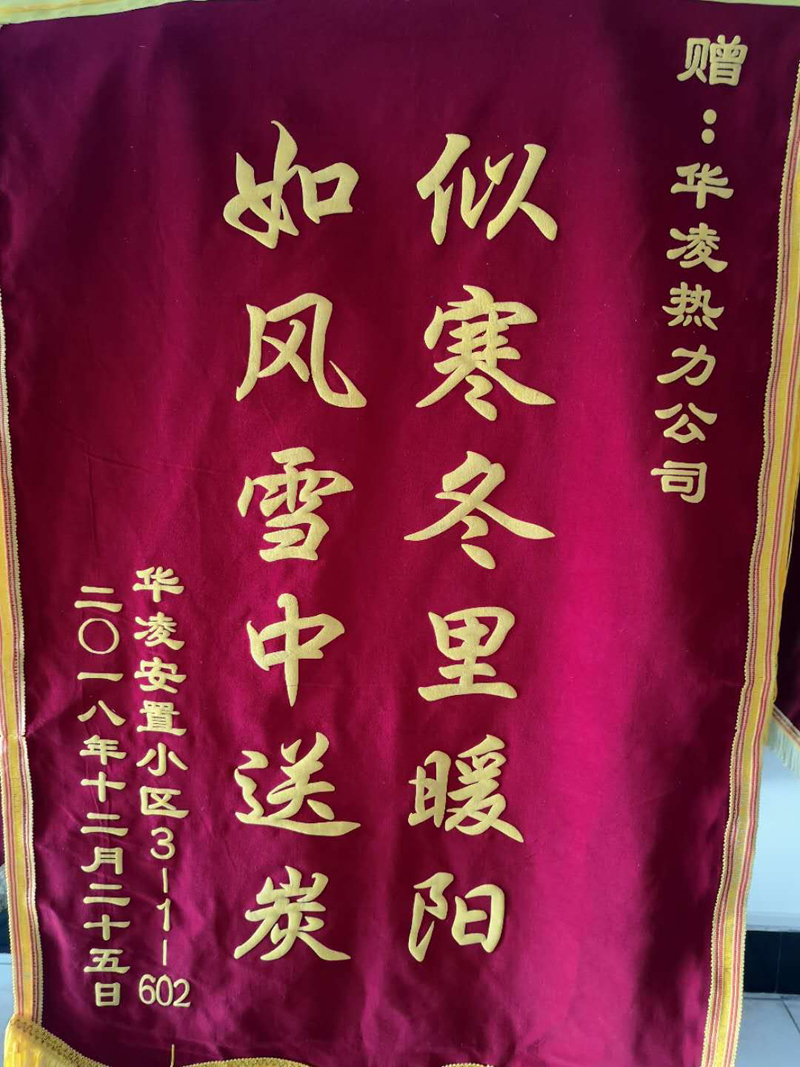 赠：华凌热力公司
似寒冬里暖阳
如风雪中送炭
华凌安置小区3-1-602
二〇一八年十二月二十五日